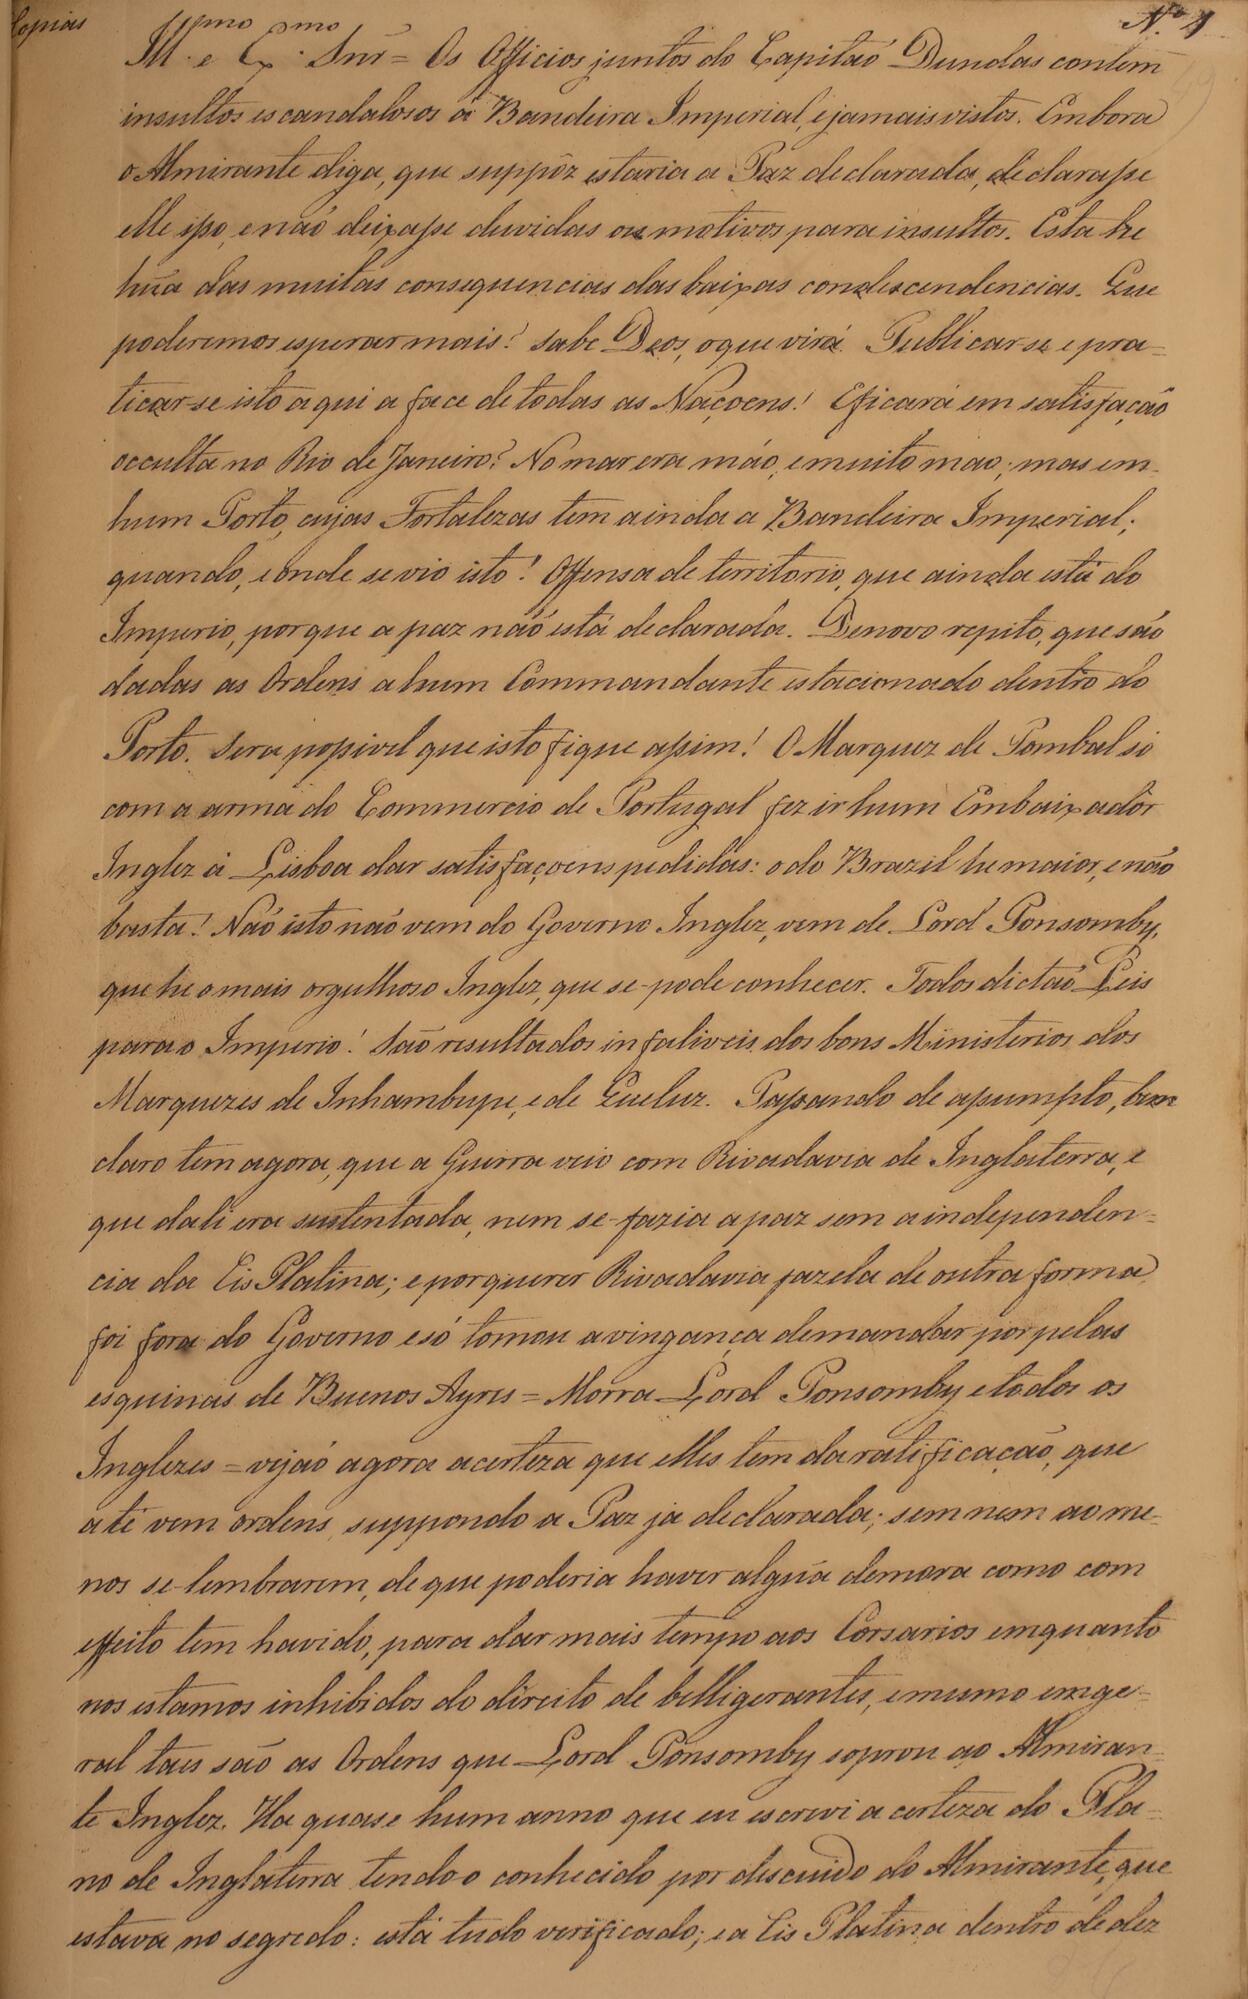 Copias
Nº 1
Illmo e Exmo Snr = Os Officios juntos do Capitaõ Dundas contem
insultos escandalosos á Bandeira Imperial, e jamais vistos. Embora
o Almirante diga, que suppôz estaria a Paz declarada, declarasse
elle isso, e naõ deixasse duvidas ou motivos para insultos. Esta he
hũa das muitas consequencias das baixas condescendencias. Que
poderemos esperar mais? Sabe Deos, o que virá. Publicar-se e pra-
ticar-se isto aqui a face de todas as Naçoens! E ficará em satisfação
occulta no Rio de Janeiro? No mar era máo, e muito mao; mas em
hum Porto, cujas Fortalezas tem ainda a Bandeira Imperial;
quando, e onde se vio isto! Offensa de territorio, que ainda está do
Imperio, porque a paz naõ está declarada. De novo repito, que são
dadas as Ordens a hum Commandante estacionado dentro do
Porto. Sera possivel que isto fique assim! O Marquez de Pombal só
com a arma do Commercio de Portugal fez ir hum Embaixador
Inglez á Lisboa dar satisfaçoens pedidas: o do Brazil he maior, e não
basta! Naõ isto naõ vem do Governo Inglez, vem de Lord Ponsomby,
que he o mais orgulhoso Inglez, que se pode conhecer. Todos dictaõ Leis
para o Imperio! Saõ resultados infaliveis dos bons Ministerios dos
Marquezes de Inhambupe, e de Queluz. Passando de assumpto, bem
claro tem agora, que a Guerra veio com Rivadavia de Inglaterra, e
que dali era sustentada, nem se fazia a paz sem a independen=
cia da Cis Platina; e por querer Rivadavia fazela de outra forma
foi fora do Governo e só tomou a vingança de mandar por pelas
esquinas de Buenos Ayres = Morra Lord Ponsomby e todos os
Inglezes = vejaõ agora a certeza que elles tem da ratificaçaõ, que
até vem ordens, suppondo a Paz ja declarada; sem nem ao me-
nos se lembrarem, de que poderia haver algũa demora como com
effeito tem havido, para dar mais tempo aos Corsarios emquanto
nos estamos inhibidos do direito de belligerantes, e mumo em ge=
ral taes são as Ordens que Lord Ponsomby soprou ao Almiran-
te Inglez. Ha quase hum anno que eu escrevi a certeza do Pla-
no de Inglaterra tendo o conhecido por descuido do Almirante, que
estava no segredo: está tudo verificado; e a Cis Platina dentro de dez